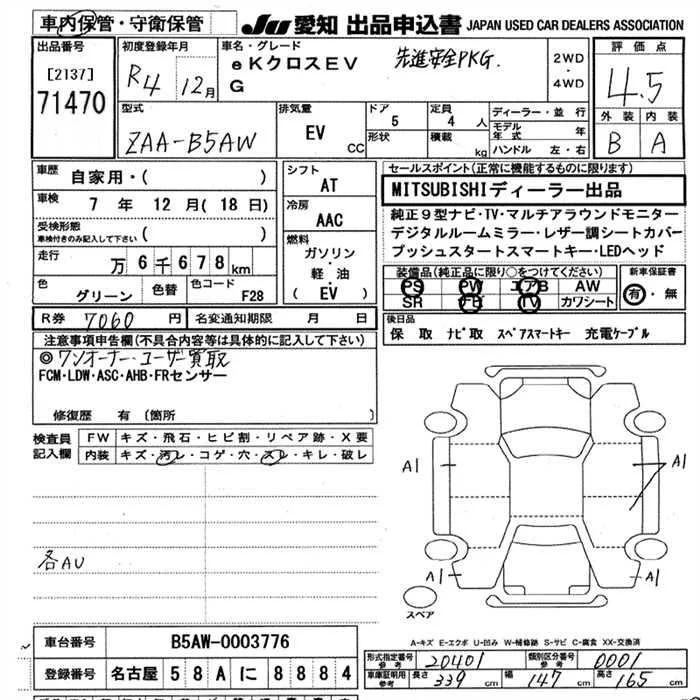 車内保管・守衛保管
JU 愛知 出品申込書 JAPAN USED CAR DEALERS ASSOCIATION
出品番号
[2137]
71470
初度登録年月
R4 12月
車名・グレード
eKクロスEV
G
先進安全PKG.
2WD
・
4WD
評価点
4.5
外装 内装
B A
型式
ZAA-B5AW
排気量
EV
CC
ドア
5
形状
定員
4 人
積載 kg
ディーラー・並行
モデル年式 年
ハンドル 左・右
車歴
自家用・( )
車検
7 年 12 月( 18 日)
受検形態
車検付きのみ記入して下さい ( )
走行
万 6 千 6 7 8 km
色
グリーン
色替
色コード
F28
シフト
AT
冷房
AAC
燃料
ガソリン
・
軽・油
( EV )
セールスポイント(正常に機能するものに限ります)
MITSUBISHIディーラー出品
純正9型ナビ・TV・マルチアラウンドモニター
デジタルルームミラー・レザー調シートカバー
プッシュスタートスマートキー・LEDヘッド
装備品(純正品に限り○をつけてください)
PS PW エアB AW
SR TV カワシート
新車保証書
有・無
R券 7060 円
名変通知期限 月 日
後日品
保 取 ナビ取 スペアスマートキー 充電ケーブル
注意事項申告欄(不具合内容等は具体的に記入して下さい)
◎ワンオーナー・ユーザー買取
FCM・LDW・ASC・AHB・FRセンサー
修復歴 有 〔箇所 〕
検査員
記入欄
FW キズ・飛石・ヒビ割・リペア跡・X要
内装 キズ・汚レ・コゲ・穴・スレ・キレ・破レ
各AU
A1
A1
A1
A1
スペア
A-キズ E-エクボ U-凹み W-補修跡 S-サビ C-腐食 XX-交換済
車台番号 B5AW-0003776
登録番号 名古屋 58A に 8884
形式指定番号 20401
類別区分番号 0001
車庫証明用
記入
長さ 339 cm 幅 147 cm 高さ 165 cm